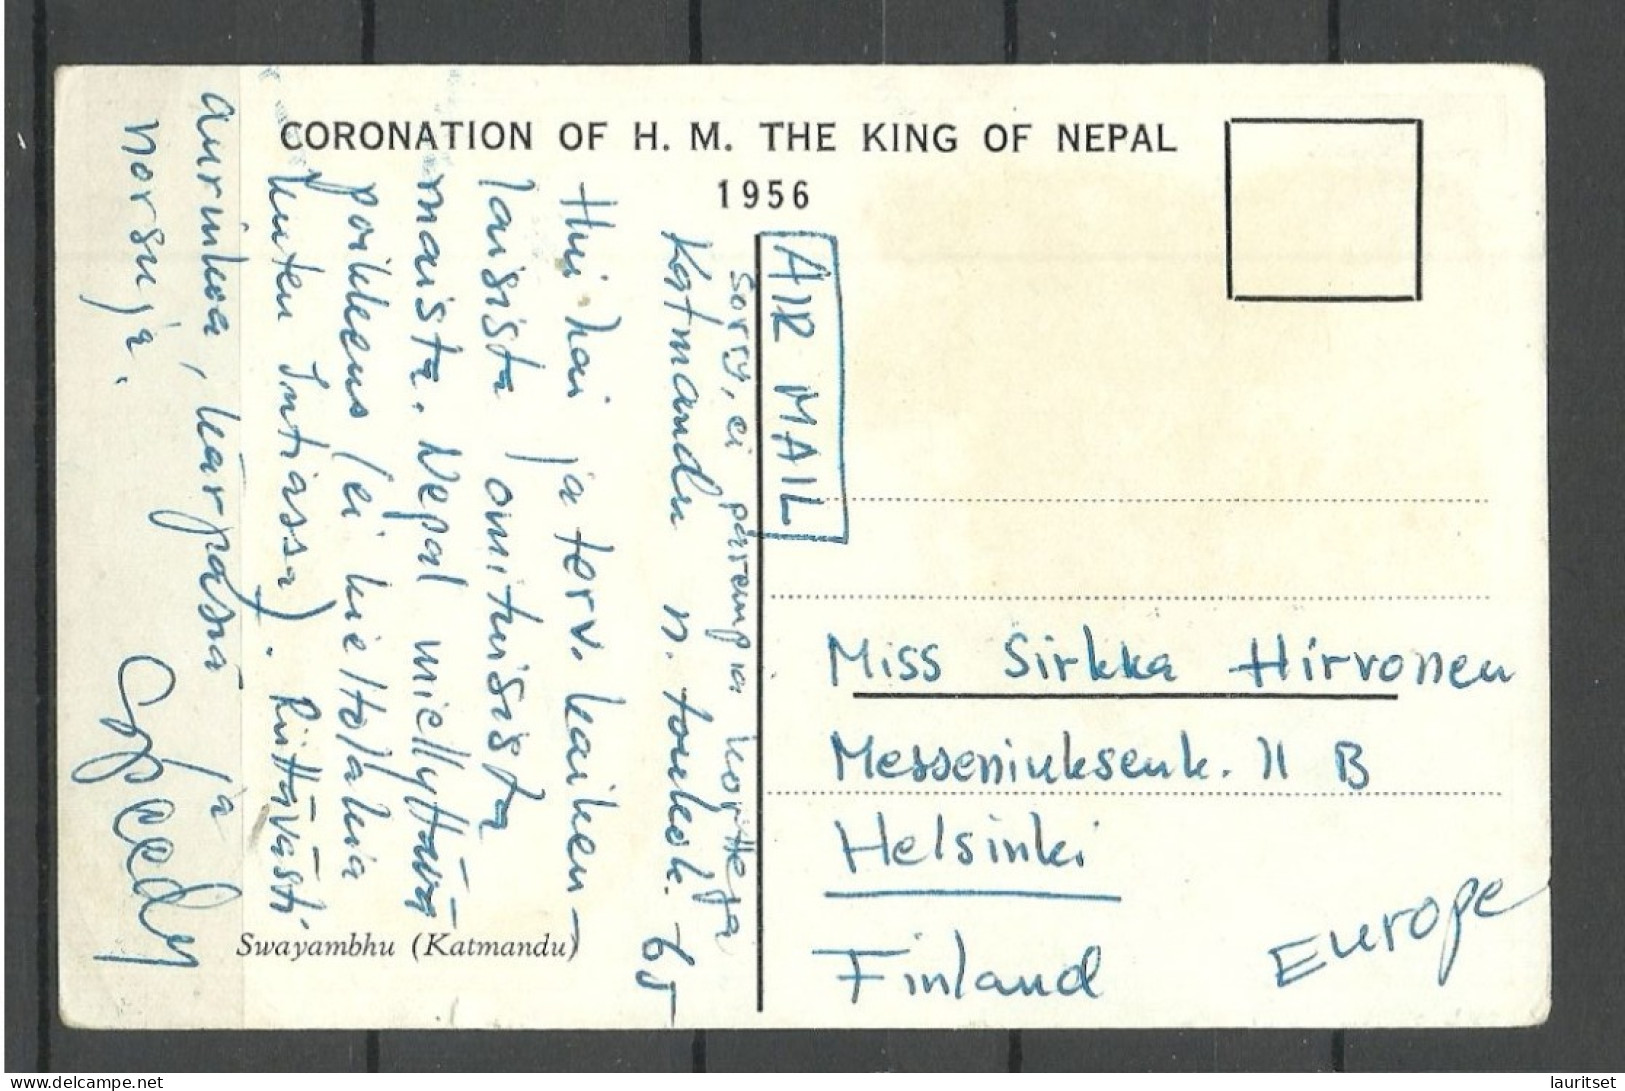 CORONATION OF H. M. THE KING OF NEPAL
1956
AIR MAIL
Sorry, ei parempia kortteja
Katmandu n. toukok. 65
Hui hai ja terv. kaiken-
laisista omituisista
maista. Nepal miellyttävä
poikkeus (ei kieltolakia
kuten Intiassa). Riittävästi
aurinkoa, kärpäsiä ja
norsuja.
Speedy
Swayambhu (Katmandu)
Miss Sirkka Hirvonen
Messeniuksenk. 11 B
Helsinki
Finland
Europe
delcampe.net
lauritset